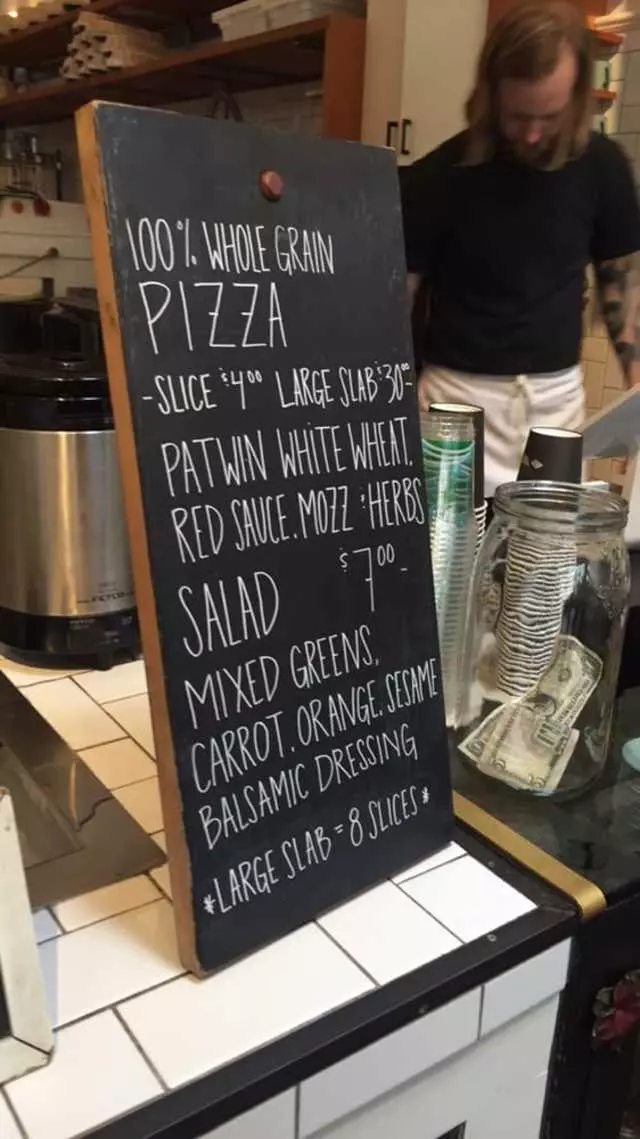 100% WHOLE GRAIN
PIZZA
-SLICE $4.00 LARGE SLAB $30.00-
PATWIN WHITE WHEAT,
RED SAUCE, MOZZ + HERBS
SALAD $7.00-
MIXED GREENS,
CARROT, ORANGE, SESAME
BALSAMIC DRESSING
*LARGE SLAB = 8 SLICES*
FETCO